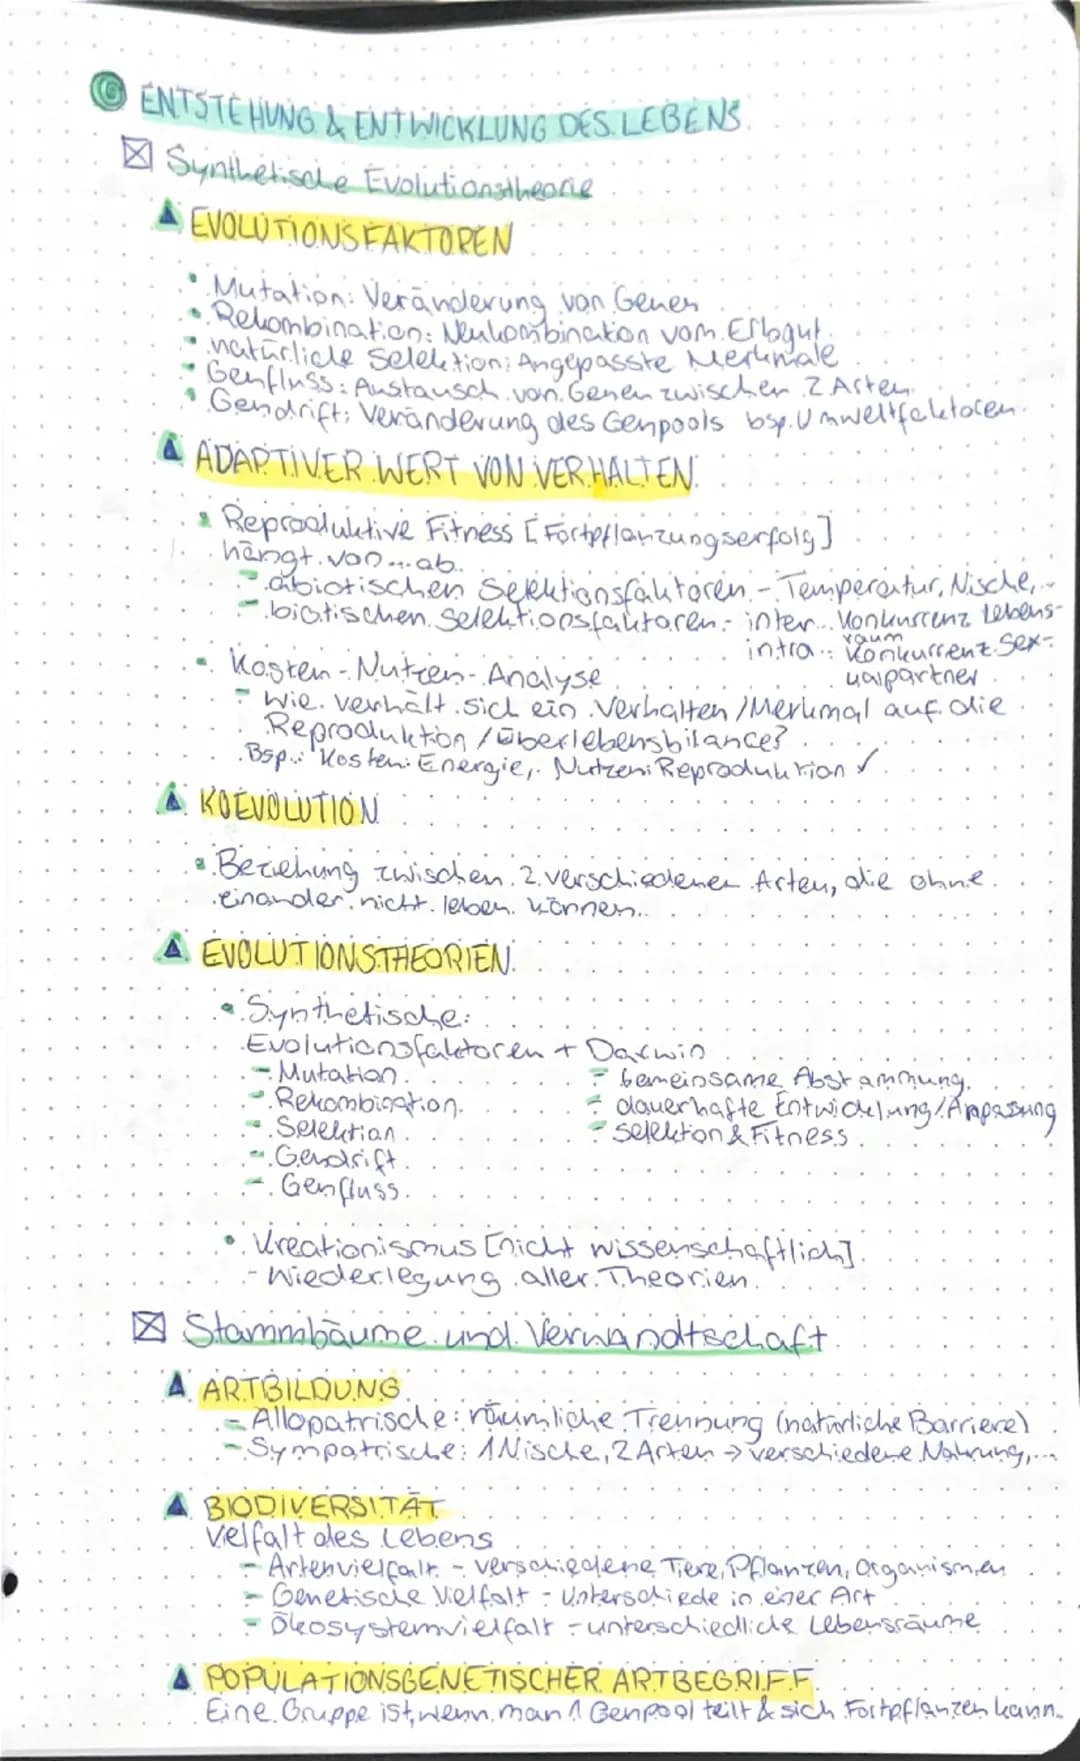 ENTSTEHUNG & ENTWICKLUNG DES LEBENS
Synthetische Evolutionstheorie
EVOLUTIONSFAKTOREN
Mutation: Veränderung von Genen
Rekombination: Neukombination vom Erbgut
natürliche Selektion: Angepasste Merkmale
Genfluss: Austausch von Genen zwischen 2 Arten
Gendrift: Veränderung des Genpools bsp. Umweltfaktoren
ADAPTIVER WERT VON VERHALTEN
Reproduktive Fitness [Fortpflanzungserfolg]
hängt von ... ab.
- abiotischen Selektionsfaktoren - Temperatur, Nische, ..
- biotischen Selektionsfaktoren - inter... Konkurrenz Lebens-
raum
intra..: Konkurrenz Sex-
ualpartner
Kosten-Nutzen-Analyse
- Wie verhält sich ein Verhalten / Merkmal auf die
Reproduktion / Überlebensbilance?
Bsp.: Kosten: Energie, Nutzen: Reproduktion ✓
KOEVOLUTION
Beziehung zwischen 2 verschiedenen Arten, die ohne
einander nicht leben können.
EVOLUTIONSTHEORIEN
Synthetische:
Evolutionsfaktoren + Darwin
- Mutation - Gemeinsame Abstammung
- Rekombination - dauerhafte Entwicklung/Anpassung
- Selektion - Selektion & Fitness
- Gendrift
- Genfluss
Kreationismus [nicht wissenschaftlich]
- Wiederlegung aller Theorien
Stammbäume und Verwandtschaft
ARTBILDUNG
- Allopatrische: räumliche Trennung (natürliche Barriere)
- Sympatrische: 1 Nische, 2 Arten → verschiedene Nahrung, ...
BIODIVERSITÄT
Vielfalt des Lebens
- Artenvielfalt - verschiedene Tiere, Pflanzen, Organismen
- Genetische Vielfalt - Unterschiede in einer Art
- Ökosystemvielfalt - unterschiedliche Lebensräume
POPULATIONSGENETISCHER ARTBEGRIFF
Eine Gruppe ist, wenn man 1 Genpool teilt & sich Fortpflanzen kann.